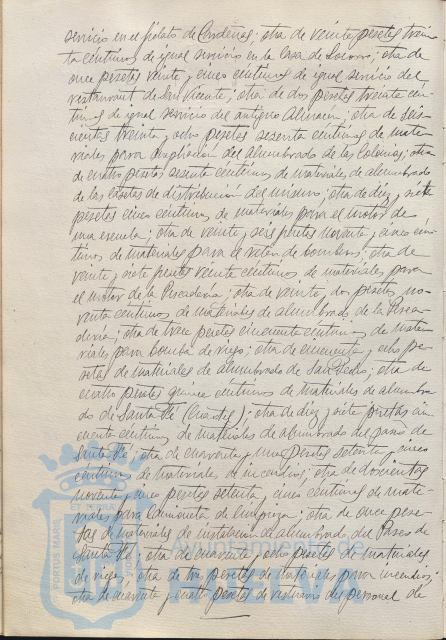 servicio en el fielato de Cardenas; otra de veinte pesetas trein
ta céntimos de igual servicio en la Casa de Socorro; otra de
once pesetas veinte y cinco céntimos de igual servicio del
restaurant de San Vicente; otra de dos pesetas treinta cén
timos de igual servicio del antiguo Almacen; otra de seis
cientas treinta y ocho pesetas sesenta céntimos de mate
riales para ampliación del alumbrado de las Colonias; otra
de cuatro pesetas sesenta céntimos de materiales de alumbrado
de las casetas de distribución del mismo; otra de diez y siete
pesetas cinco céntimos de materiales para el motor de
una escuela; otra de veinte y seis pesetas noventa y cinco cén
timos de materiales para el reten de bomberos; otra de
veinte y siete pesetas veinte céntimos de materiales para
el motor de la Pescadería; otra de veinte y dos pesetas no
venta céntimos de materiales de alumbrado de la Pesca
dería; otra de trece pesetas cincuenta céntimos de mate
riales para bomba de riego; otra de cincuenta y ocho pe
setas de materiales de alumbrado de San Pedro; otra de
cuatro pesetas quince céntimos de materiales de alumbra
do de Santa Fé (Cuartel); otra de diez y siete pesetas cin
cuenta céntimos de materiales de alumbrado del paseo de
Santa Fé; otra de cuarenta y una pesetas setenta y cinco
céntimos de materiales de incendios; otra de doscientas
noventa y cinco pesetas setenta y cinco céntimos de mate
riales para camioneta de limpieza; otra de once pese
tas de materiales de instalación de alumbrado del Paseo de
Santa Fé; otra de cuarenta y ocho pesetas de materiales
de riegos; otra de tres pesetas de materiales para incendios;
otra de cuarenta y cuatro pesetas de vestuario del personal de
PORTUS MARIS
HUELVA